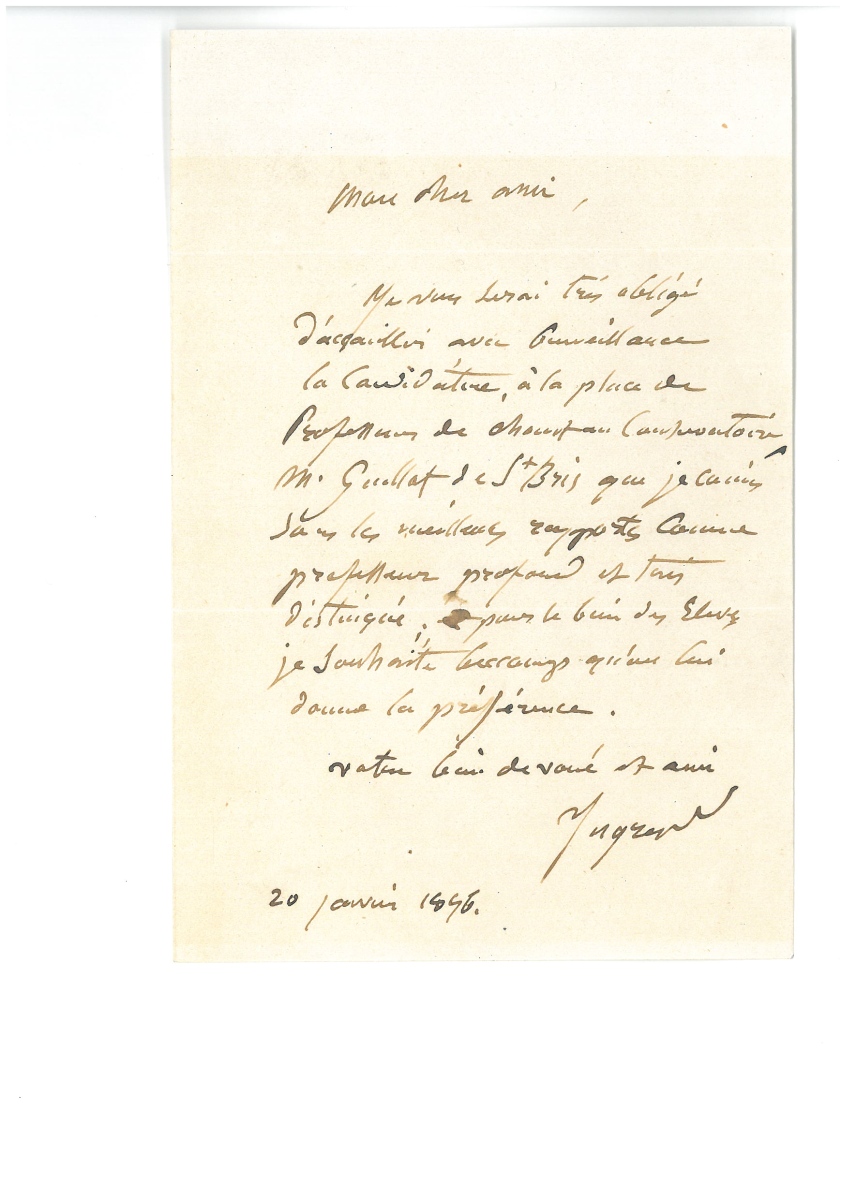 Mon cher ami,
Je vous serai très obligé
d'accueillir avec bienveillance
la Candidature, à la place de
Professeur de chant au Conservatoire
M. Guillot de St Bris que je connais
sous les meilleurs rapports comme
professeur profond et très
distingué; pour le bien des Eleves
je souhaite beaucoup qu'on lui
donne la préférence.
votre bien devoué et ami
Ingres
20 janvier